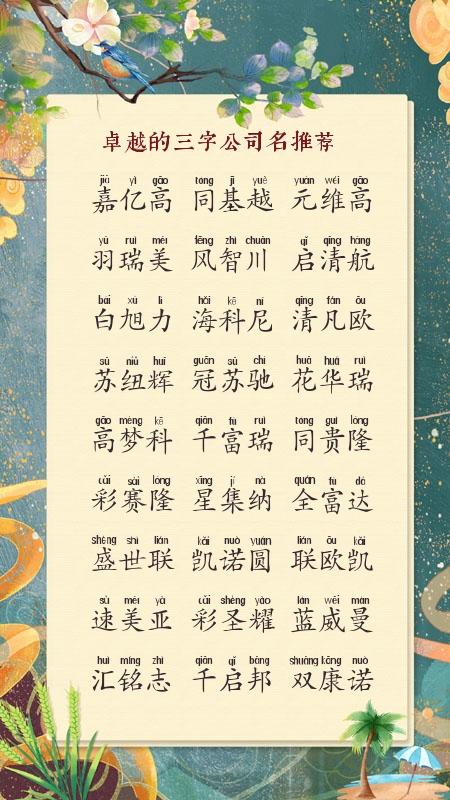 卓越的三字公司名推荐
jiā yì gāo tóng jī yuè yuán wéi gāo
嘉亿高 同基越 元维高
yǔ ruì měi fēng zhì chuān qǐ qīng háng
羽瑞美 风智川 启清航
bái xù lì hǎi kē ní qīng fán ōu
白旭力 海科尼 清凡欧
sū niǔ huī guān sū chí huā huá ruì
苏纽辉 冠苏驰 花华瑞
gāo mèng kē qiān fù ruì tóng guì lóng
高梦科 千富瑞 同贵隆
cǎi sài lóng xīng jí nà quán fù dá
彩赛隆 星集纳 全富达
shèng shì lián kǎi nuò yuán lián ōu kǎi
盛世联 凯诺圆 联欧凯
sù měi yà cǎi shèng yào lán wēi màn
速美亚 彩圣耀 蓝威曼
huì míng zhì qiān qǐ bāng shuāng kāng nuò
汇铭志 千启邦 双康诺